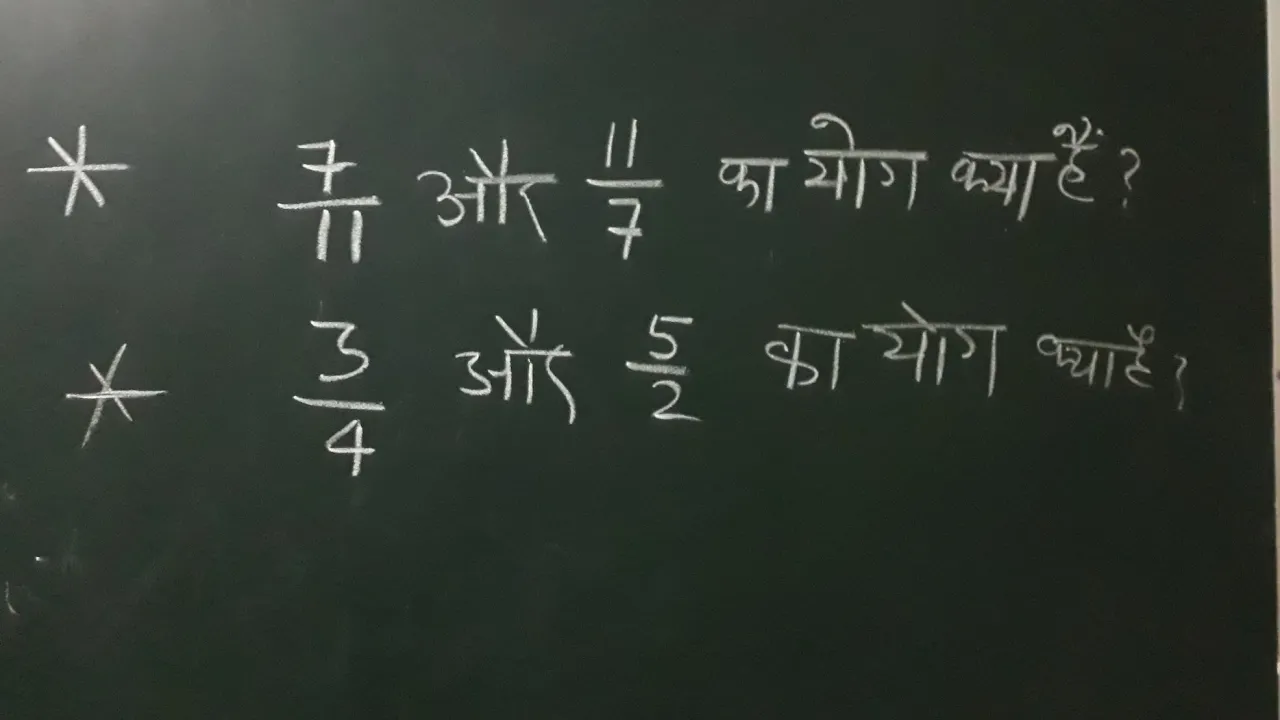 * 7/11 और 11/7 का योग क्या हैं?
* 3/4 और 5/2 का योग क्या है?